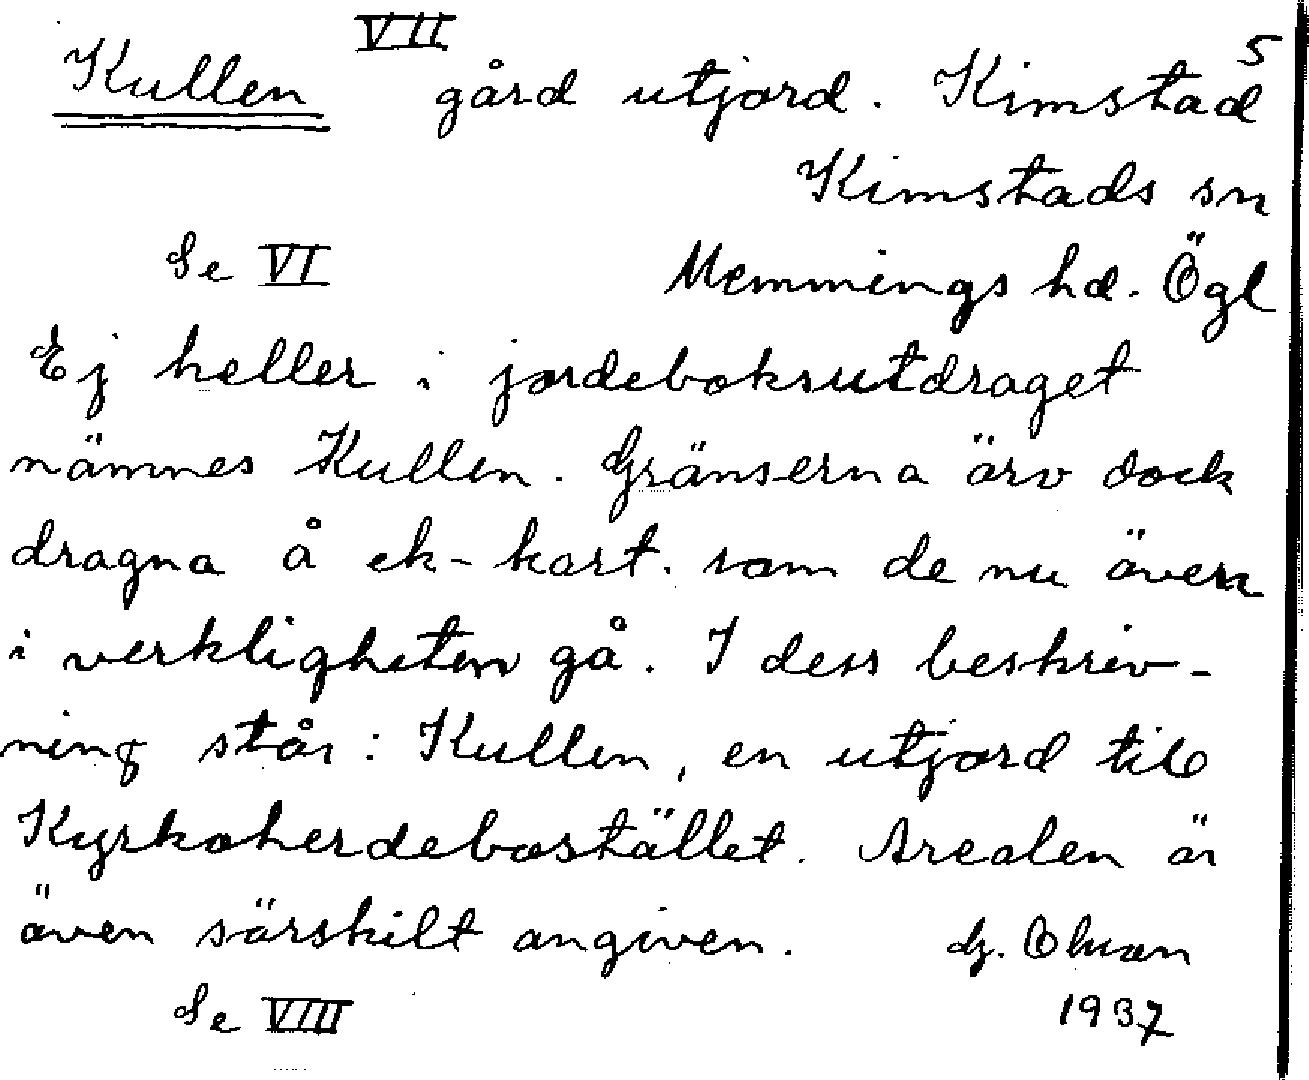 VII 5
Kullen gård utjord. Kimstad
Kimstads sn
Se VI Memmings hd. Ögl
Ej heller i jordeboksutdraget
nämnes Kullen. Gränserna äro dock
dragna å ek-kart. som de nu även
i verkligheten gå. I dess beskriv-
ning står: Kullen, en utjord till
Kyrkoherdebostället. Arealen är
även särskilt angiven. G. Olson
Se VIII 1937